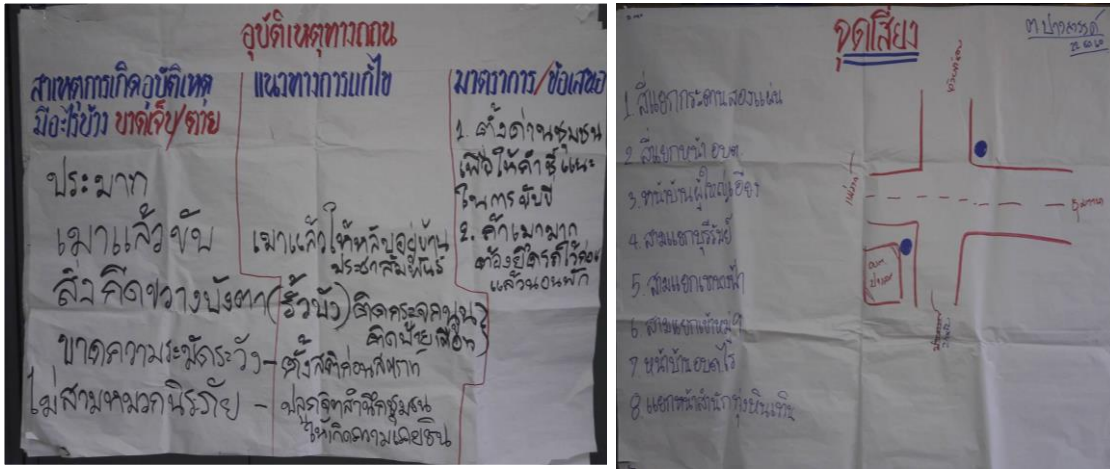 อุบัติเหตุทางถนน
สาเหตุการเกิดอุบัติเหตุ
มีอะไรบ้าง บาดเจ็บ/ตาย
ประมาท
เมาแล้วขับ
สิ่งกีดขวางบังตา(รั้วบัง)
ขาดความระมัดระวัง-
ไม่สวมหมวกนิรภัย -
แนวทางการแก้ไข
เมาแล้วให้หลับอยู่บ้าน
ประชาสัมพันธ์
ติดกระจกนูน
ติดป้ายเตือน
ตั้งสติก่อนสตาร์ท
ปลูกจิตสำนึกชุมชน
ให้เกิดความเคยชิน
มาตราการ/ข้อเสนอ
1. ตั้งด่านชุมชน
เพื่อให้คำชี้แนะ
ในการขับขี่
2. ถ้าเมามาก
ต้องยึดรถไว้ก่อน
แล้วนอนพัก
จุดเสี่ยง
1. สี่แยกกระดานสองแผ่น
2. สี่แยกหน้า อบต.
3. หน้าบ้านผู้ใหญ่
4. สามแยกบุรีรัมย์
5. สามแยก
6. สามแยก
7. หน้าบ้าน
8. แยกหน้าสำนัก
อบต.